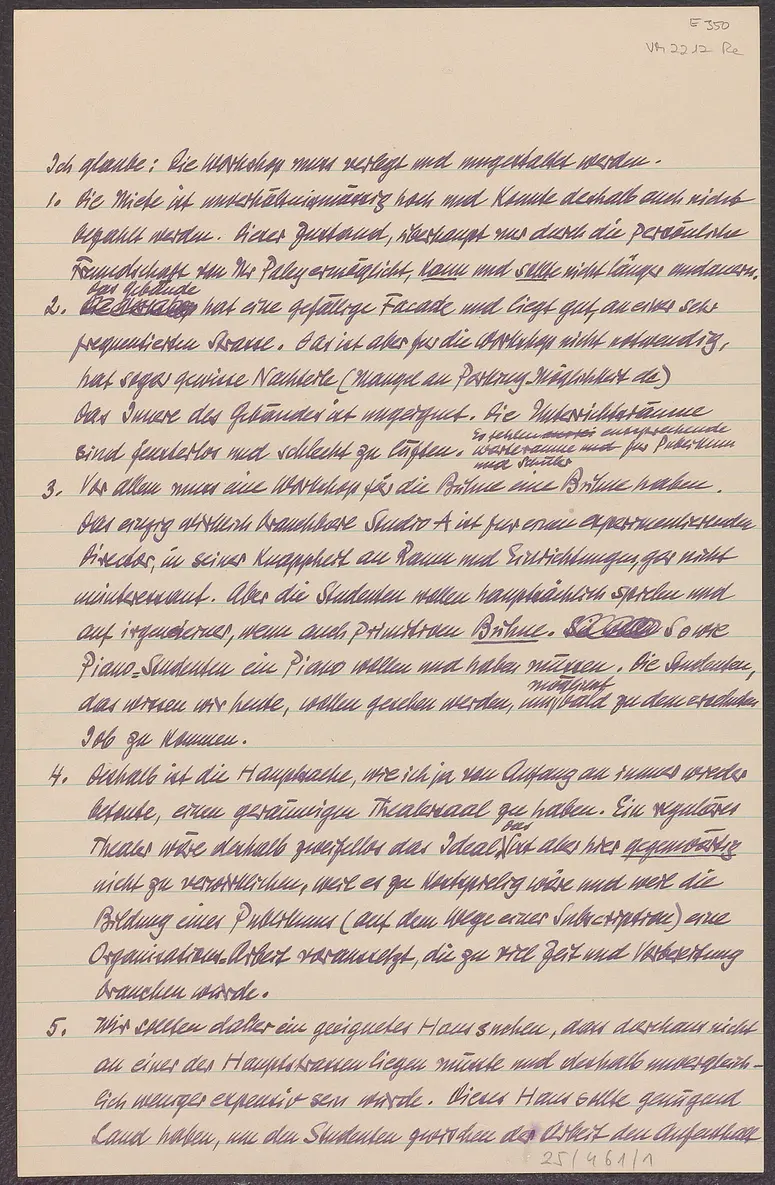 E 350
VM 2212 Re
Ich glaube: Die Workshop muss verlegt und umgestaltet werden.
1. Die Miete ist unverhältnismässig hoch und konnte deshalb auch nicht
bezahlt werden. Dieser Zustand, überhaupt nur durch die persönliche
Freundschaft von Mr Paley ermöglicht, kann und sollte nicht länger andauern.
das Gebäude
2. hat eine gefällige Facade und liegt gut, an einer sehr
frequentierten Strasse. Das ist aber für die Workshop nicht notwendig,
hat sogar gewisse Nachteile (Mangel an Parking Möglichkeit etc)
Das Innere des Gebäudes ist ungeeignet. Die Unterrichtsräume
sind fensterlos und schlecht zu lüften. Es fehlen entsprechende
Warteräume für Publikum
und Schüler
3. Vor allem muss eine Workshop für die Bühne eine Bühne haben.
Das einzig wirklich brauchbare Studio A ist für einen experimentierenden
Director, in seiner Knappheit an Raum und Einrichtungen, gar nicht
uninteressant. Aber die Studenten wollen hauptsächlich spielen und
auf irgendeiner, wenn auch primitiven Bühne. So wie
Piano=Studenten ein Piano wollen und haben müssen. Die Studenten,
das wissen wir heute, wollen gesehen werden, um möglichst bald zu dem ersehnten
Job zu kommen.
4. Deshalb ist die Hauptsache, wie ich ja von Anfang an immer wieder
betonte, einen geräumigen Theatersaal zu haben. Ein reguläres
Theater wäre deshalb zweifellos das Ideal, das ist aber hier gegenwärtig
nicht zu verwirklichen, weil es zu kostspielig wäre und weil die
Bildung eines Publikums (auf dem Wege einer Subscription) eine
Organisations=Arbeit voraussetzt, die zu viel Zeit und Vorbereitung
brauchen würde.
5. Wir sollten daher ein geeignetes Haus suchen, dass durchaus nicht
an einer der Hauptstrassen liegen müsste und deshalb unvergleich-
lich weniger expensiv sein würde. Dieses Haus sollte genügend
Land haben, um den Studenten zwischen der Arbeit den Aufenthalt
25/461/1